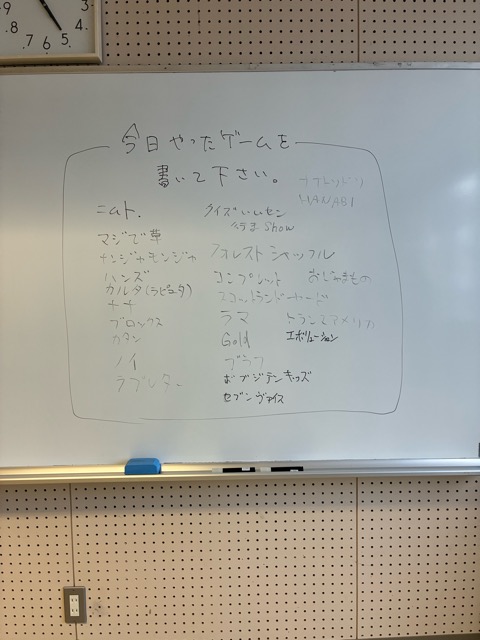 9 3
8 4
7 6 5
今日やったゲームを
書いて下さい。
HANABI
ニムト.
マジで草
ナンジャモンジャ
ハンズ
カルタ(ラピュタ)
ナナ
ブロックス
カタン
ノイ
ラブレター
クイズいいセン
行きま Show
フォレストシャッフル
コンプレット おじゃまもの
スコットランドヤード
ラマ トランスアメリカ
Gold エボリューション
ブラフ
キッズ
セブンヴァイス